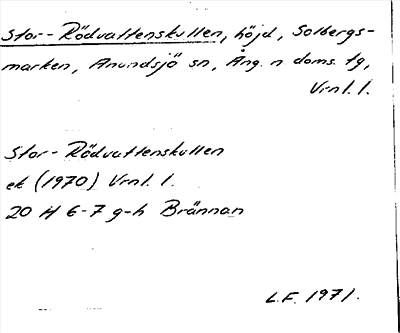 Stor-Rödvattenskullen, höjd, Solbergs-
marken, Anundsjö sn, Ång. n doms. tg,
Vrnl. l.
Stor-Rödvattenskullen
ek (1970) Vrnl. l.
20 H 6-7 g-h Brännan
L.F. 1971.